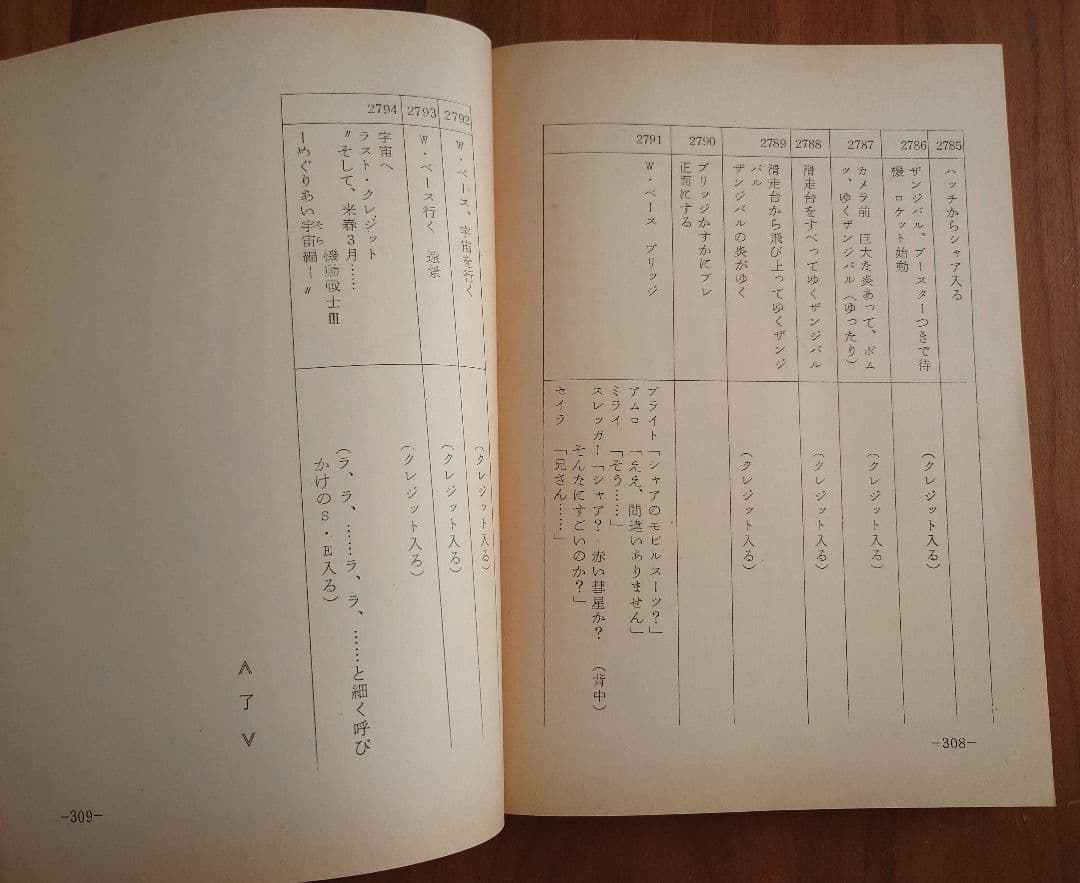 2785
ハッチからシャア入る
2786
ザンジバル、ブースターつきで待
機 ロケット始動
(クレジット入る)
2787
カメラ前 巨大な炎あって、ボム
ッ、ゆくザンジバル(ゆったり)
(クレジット入る)
2788
滑走台をすべってゆくザンジバル
(クレジット入る)
2789
滑走台から飛び上ってゆくザンジ
バル
ザンジバルの炎がゆく
(クレジット入る)
2790
ブリッジかすかにブレ
正面にする
2791
W・ベース ブリッジ
ブライト「シャアのモビルスーツ?」
アムロ「ええ、間違いありません」
ミライ「そう……」
スレッガー「シャア? 赤い彗星か? (背中)
そんなにすごいのか?」
セイラ「兄さん……」
-308-
2792
W・ベース、宇宙を行く
(クレジット入る)
2793
W・ベース行く 遠景
(クレジット入る)
2794
宇宙へ
(クレジット入る)
ラスト・クレジット
〃そして、来春3月……
機動戦士Ⅲ
ーめぐりあい宇宙編ー〃
そら
(ラ、ラ、……ラ、ラ、……と細く呼び
かけのS・E入る)
≪了≫
-309-